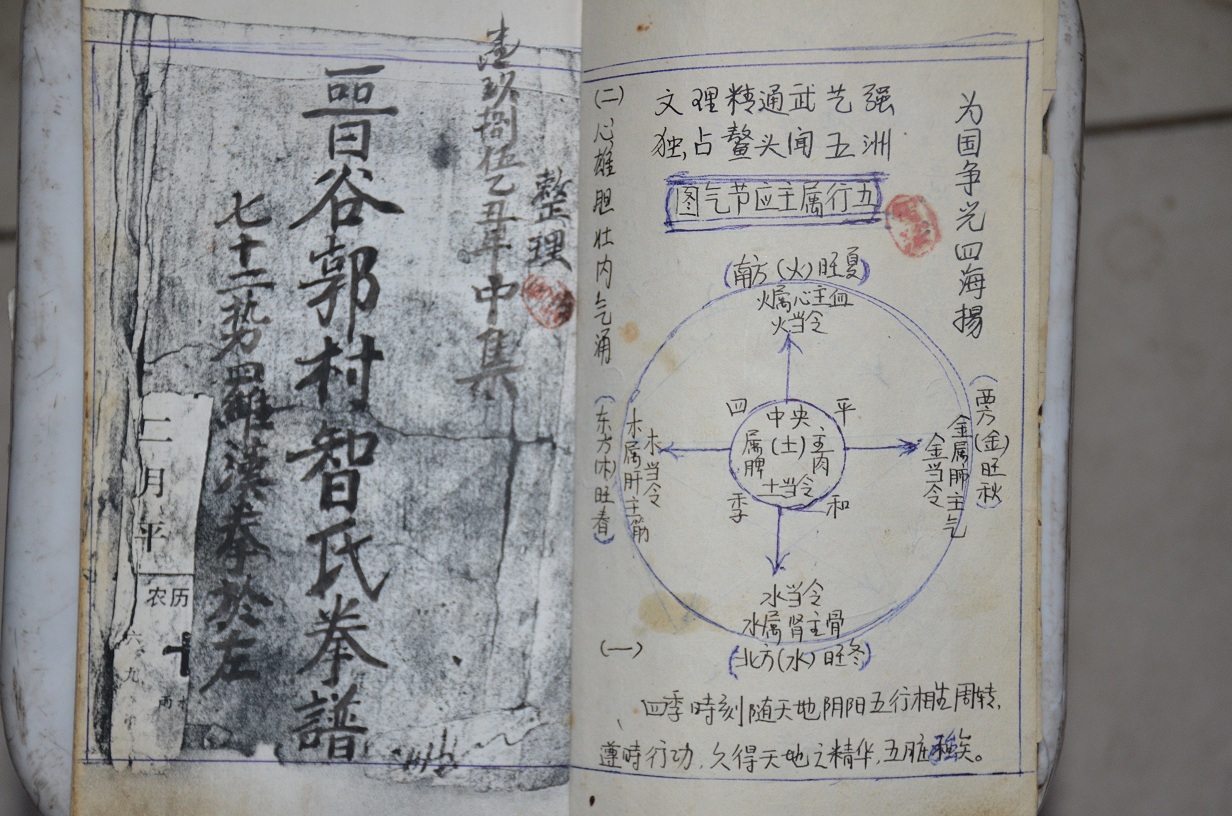 壹玖捌伍乙丑年中集
整理
晋谷郭村智氏拳譜
七十二势四羅漢拳於左
二月平
农历
六
九
十
为国争光四海揚
文理精通武艺强
独占鳌头闻五洲
图气节应主属行五
(二)心雄胆壮内气涌
(南方(火)旺夏)
火属心主血
火当令
四 平
季 和
中央
(土)
属脾
主肉
土当令
(东方(木)旺春)
木属肝主筋
木当令
(西方(金)旺秋)
金属肺主气
金当令
水当令
水属肾主骨
(北方(水)旺冬)
(一)
四季時刻随天地阴阳五行相生周转,
遵時行功,久得天地之精华,五脏强矣。